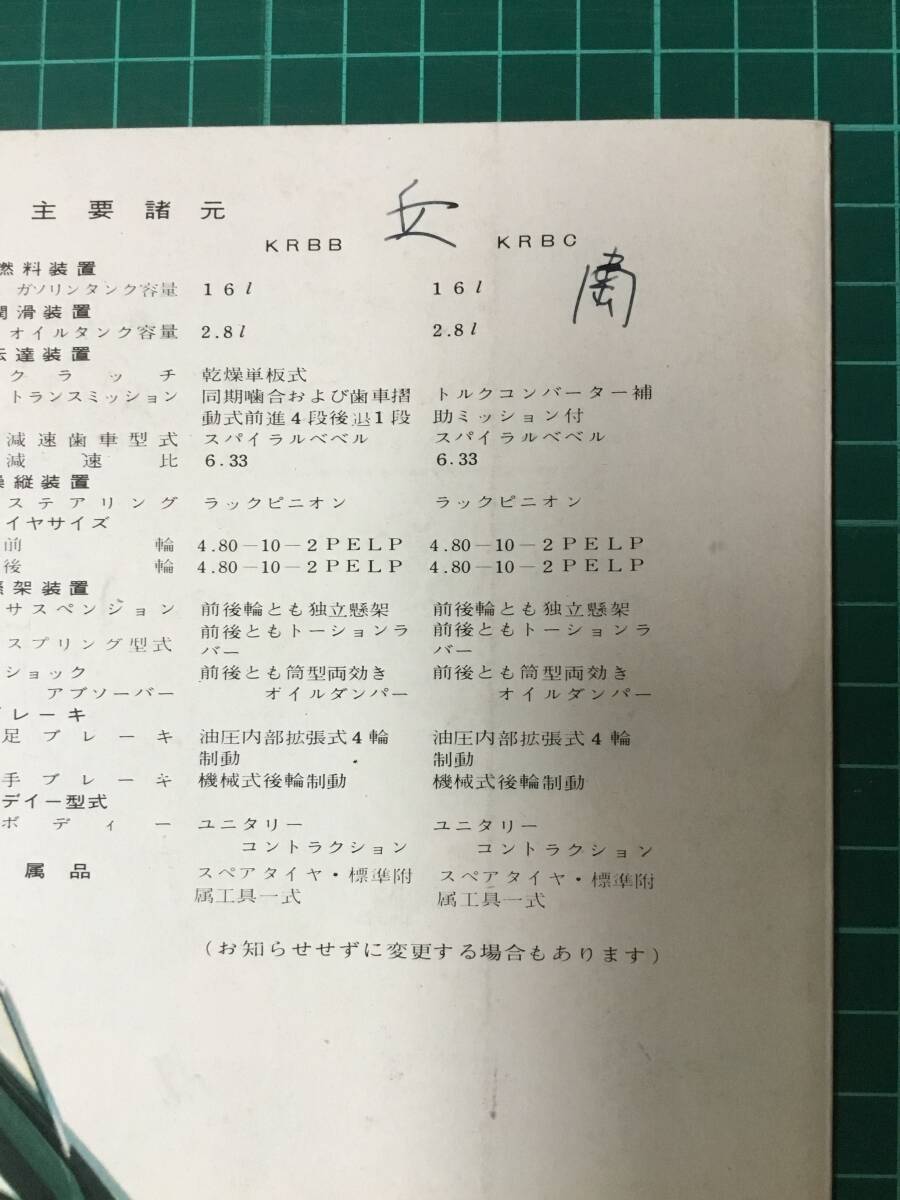 主要諸元
KRBB KRBC
燃料装置
ガソリンタンク容量 16l 16l
潤滑装置
オイルタンク容量 2.8l 2.8l
伝達装置
クラッチ 乾燥単板式
トランスミッション 同期噛合および歯車摺 トルクコンバーター補
動式前進4段後退1段 助ミッション付
減速歯車型式 スパイラルベベル スパイラルベベル
減速比 6.33 6.33
操縦装置
ステアリング ラックピニオン ラックピニオン
イヤサイズ
前輪 4.80-10-2PELP 4.80-10-2PELP
後輪 4.80-10-2PELP 4.80-10-2PELP
懸架装置
サスペンション 前後輪とも独立懸架 前後輪とも独立懸架
スプリング型式 前後ともトーションラ 前後ともトーションラ
バー バー
ショック 前後とも筒型両効き 前後とも筒型両効き
アブソーバー オイルダンパー オイルダンパー
ブレーキ
足ブレーキ 油圧内部拡張式4輪 油圧内部拡張式4輪
制動 制動
手ブレーキ 機械式後輪制動 機械式後輪制動
デイー型式
ボディー ユニタリー ユニタリー
コントラクション コントラクション
属品 スペアタイヤ・標準附 スペアタイヤ・標準附
属工具一式 属工具一式
(お知らせせずに変更する場合もあります)